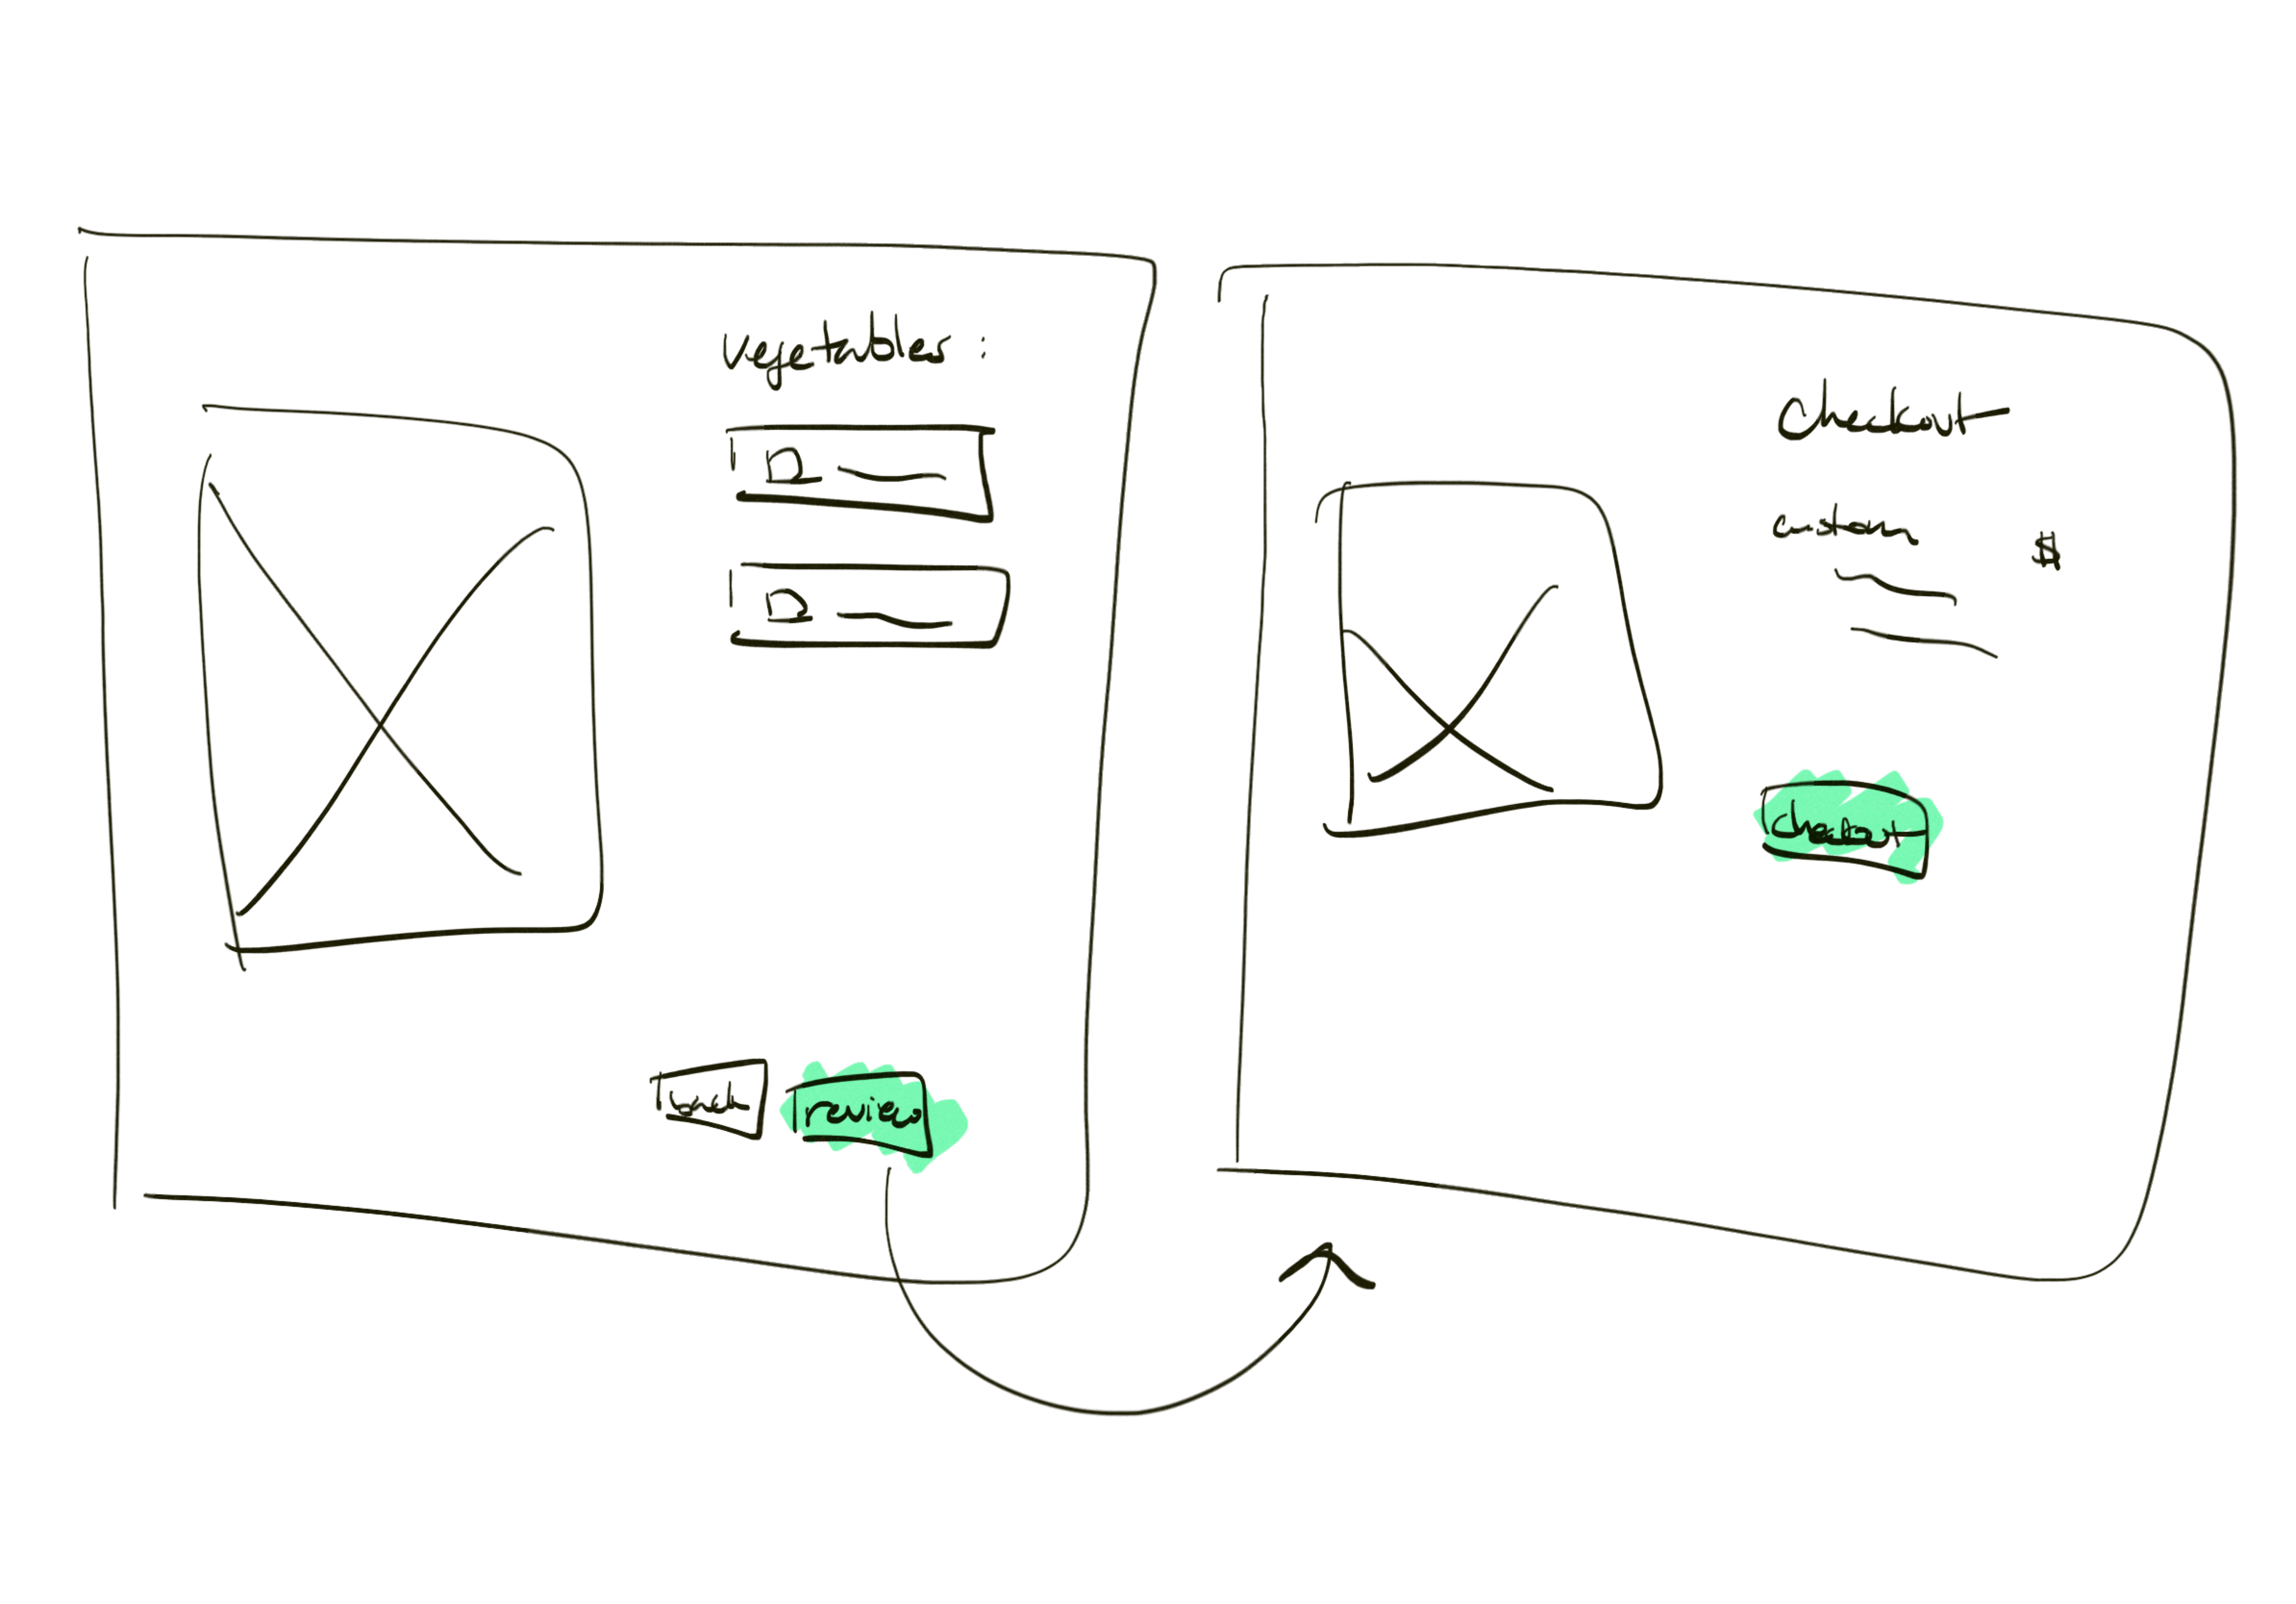 vegetables :
back
review
Checkout
custom
$
checkout